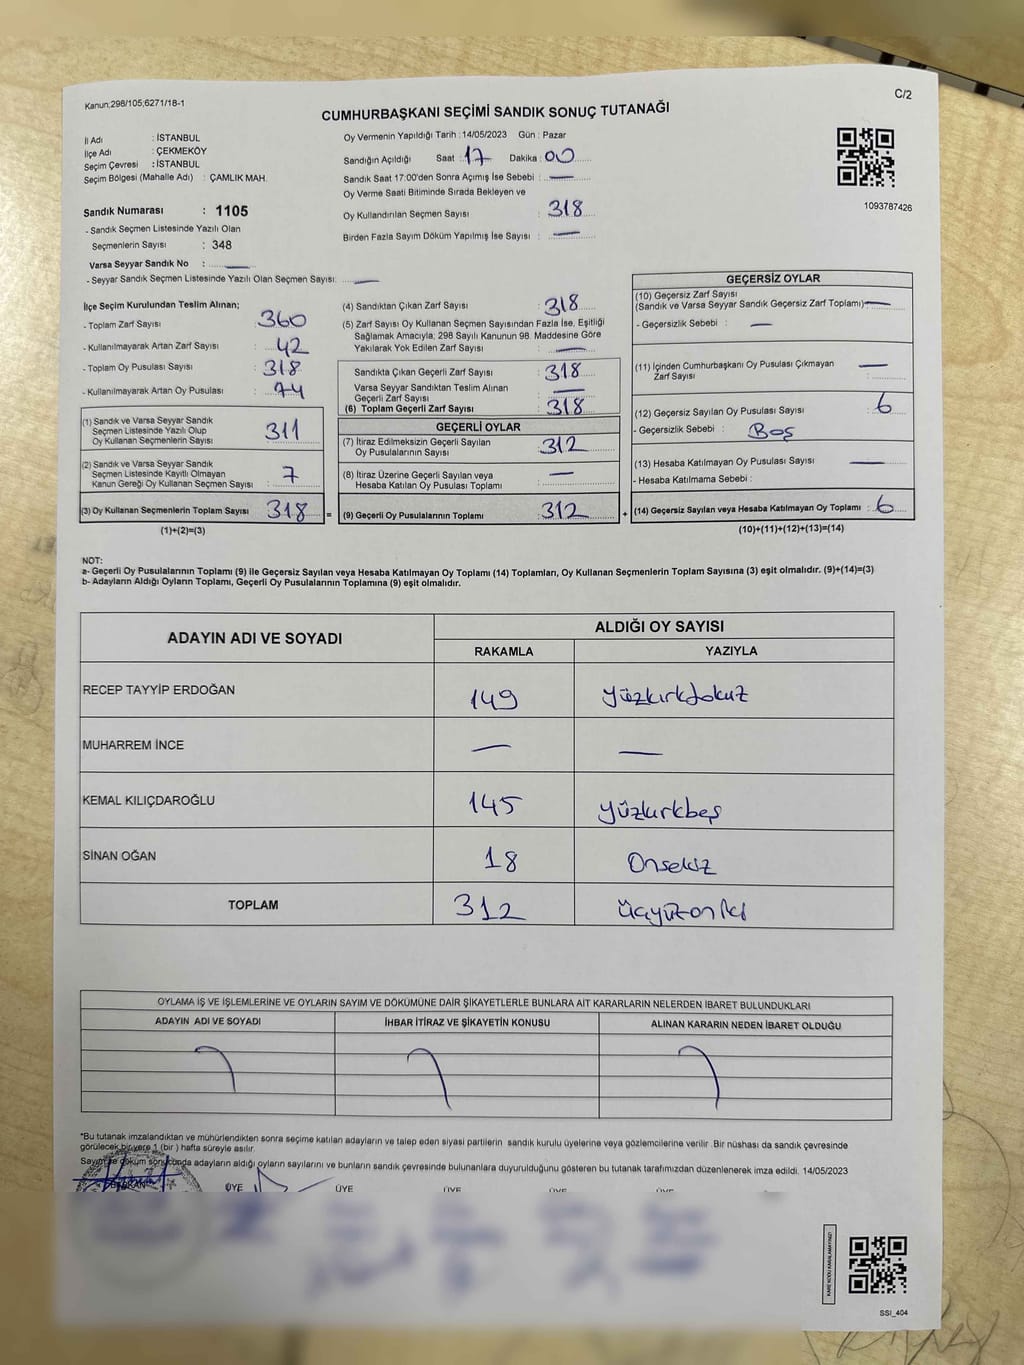 Kanun;298/105;6271/18-1
C/2
CUMHURBAŞKANI SEÇİMİ SANDIK SONUÇ TUTANAĞI
İl Adı : İSTANBUL
İlçe Adı : ÇEKMEKÖY
Seçim Çevresi : İSTANBUL
Seçim Bölgesi (Mahalle Adı) : ÇAMLIK MAH.
Oy Vermenin Yapıldığı Tarih : 14/05/2023 Gün : Pazar
Sandığın Açıldığı Saat : 17 Dakika : 00
Sandık Saat 17:00'den Sonra Açımış İse Sebebi : —
Oy Verme Saati Bitiminde Sırada Bekleyen ve
Oy Kullandırılan Seçmen Sayısı : 318
Birden Fazla Sayım Döküm Yapılmış İse Sayısı : —
1093787426
Sandık Numarası : 1105
- Sandık Seçmen Listesinde Yazılı Olan
Seçmenlerin Sayısı : 348
Varsa Seyyar Sandık No : —
- Seyyar Sandık Seçmen Listesinde Yazılı Olan Seçmen Sayısı: —
İlçe Seçim Kurulundan Teslim Alınan;
- Toplam Zarf Sayısı : 360
- Kullanılmayarak Artan Zarf Sayısı : 42
- Toplam Oy Pusulası Sayısı : 318
- Kullanılmayarak Artan Oy Pusulası : 74
(1) Sandık ve Varsa Seyyar Sandık
Seçmen Listesinde Yazılı Olup
Oy Kullanan Seçmenlerin Sayısı : 311
(2) Sandık ve Varsa Seyyar Sandık
Seçmen Listesinde Kayıtlı Olmayan
Kanun Gereği Oy Kullanan Seçmen Sayısı : 7
(3) Oy Kullanan Seçmenlerin Toplam Sayısı : 318
(1)+(2)=(3)
(4) Sandıktan Çıkan Zarf Sayısı : 318
(5) Zarf Sayısı Oy Kullanan Seçmen Sayısından Fazla İse, Eşitliği
Sağlamak Amacıyla; 298 Sayılı Kanunun 98. Maddesine Göre
Yakılarak Yok Edilen Zarf Sayısı : —
Sandıkta Çıkan Geçerli Zarf Sayısı : 318
Varsa Seyyar Sandıktan Teslim Alınan
Geçerli Zarf Sayısı : —
(6) Toplam Geçerli Zarf Sayısı : 318
GEÇERLİ OYLAR
(7) İtiraz Edilmeksizin Geçerli Sayılan
Oy Pusulalarının Sayısı : 312
(8) İtiraz Üzerine Geçerli Sayılan veya
Hesaba Katılan Oy Pusulası Toplamı : —
= (9) Geçerli Oy Pusulalarının Toplamı : 312 +
GEÇERSİZ OYLAR
(10) Geçersiz Zarf Sayısı
(Sandık ve Varsa Seyyar Sandık Geçersiz Zarf Toplamı) —
- Geçersizlik Sebebi : —
(11) İçinden Cumhurbaşkanı Oy Pusulası Çıkmayan
Zarf Sayısı : —
(12) Geçersiz Sayılan Oy Pusulası Sayısı : 6
- Geçersizlik Sebebi : Boş
(13) Hesaba Katılmayan Oy Pusulası Sayısı : —
- Hesaba Katılmama Sebebi :
(14) Geçersiz Sayılan veya Hesaba Katılmayan Oy Toplamı : 6
(10)+(11)+(12)+(13)=(14)
NOT:
a- Geçerli Oy Pusulalarının Toplamı (9) ile Geçersiz Sayılan veya Hesaba Katılmayan Oy Toplamı (14) Toplamları, Oy Kullanan Seçmenlerin Toplam Sayısına (3) eşit olmalıdır. (9)+(14)=(3)
b- Adayların Aldığı Oyların Toplamı, Geçerli Oy Pusulalarının Toplamına (9) eşit olmalıdır.
ADAYIN ADI VE SOYADI
ALDIĞI OY SAYISI
RAKAMLA YAZIYLA
RECEP TAYYİP ERDOĞAN 149 yüzkırkdokuz
MUHARREM İNCE — —
KEMAL KILIÇDAROĞLU 145 yüzkırkbeş
SİNAN OĞAN 18 Onsekiz
TOPLAM 312 üçyüzoniki
OYLAMA İŞ VE İŞLEMLERİNE VE OYLARIN SAYIM VE DÖKÜMÜNE DAİR ŞİKAYETLERLE BUNLARA AİT KARARLARIN NELERDEN İBARET BULUNDUKLARI
ADAYIN ADI VE SOYADI İHBAR İTİRAZ VE ŞİKAYETİN KONUSU ALINAN KARARIN NEDEN İBARET OLDUĞU
*Bu tutanak imzalandıktan ve mühürlendikten sonra seçime katılan adayların ve talep eden siyasi partilerin sandık kurulu üyelerine veya gözlemcilerine verilir .Bir nüshası da sandık çevresinde
görülecek bir yere 1 (bir ) hafta süreyle asılır.
Sayım ve döküm sonucunda adayların aldığı oyların sayılarını ve bunların sandık çevresinde bulunanlara duyurulduğunu gösteren bu tutanak tarafımızdan düzenlenerek imza edildi. 14/05/2023
BAŞKAN ÜYE ÜYE ÜYE ÜYE ÜYE
KARE KODU KARALAMAYINIZ!
SSI_404